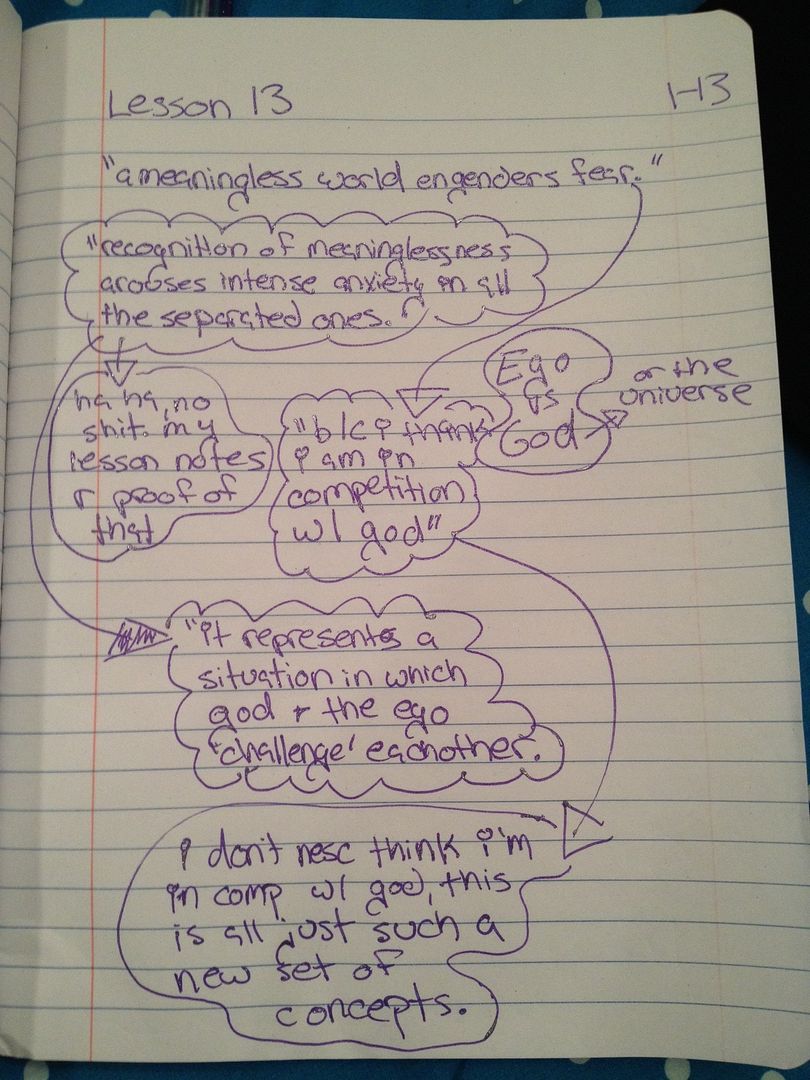 Lesson 13
1-13
"a meaningless world engenders fear."
"recognition of meaninglessness
arouses intense anxiety in all
the separated ones."
ha ha, no
shit. my
lesson notes
r proof of
that
"b/c i think
i am in
competition
w/ god"
Ego
vs
God
or the
universe
"it represents a
situation in which
god + the ego
'challenge' eachother.
i don't nesc think i'm
in comp w/ god, this
is all just such a
new set of
concepts.